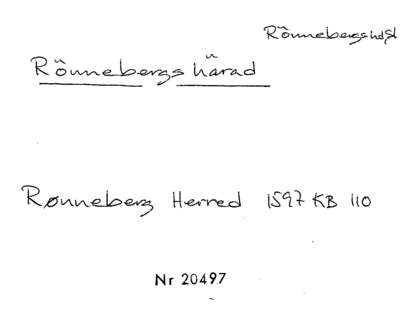 Rönnebergs hd, Sk
Rönnebergs härad
Rønneberg Herred 1597 KB 110
Nr 20497